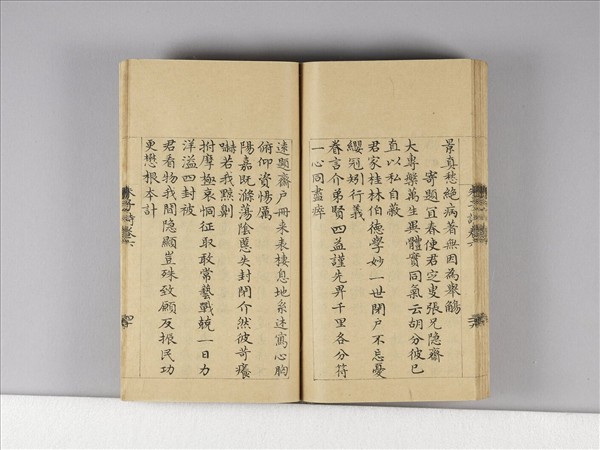 景真愁絕病著無因為舉觴
寄題宜春使君定叟張兄隱齋
大專槃萬生異體實同氣云胡分彼己
直以私自蔽
君家桂林伯德學妙一世閉戶不忘憂
纓冠矧行義
眷言介弟賢四益謹先畀千里各分符
一心同盡瘁
遠題齋戶冊來表棲息地遠寓心胸
俯仰資惕厲
陽嘉既滌蕩陰慝失封閉介然彼苛癢
嚇若我黥劓
拊摩極哀恫征取敢常藝戰兢一日力
洋溢四封被
君看物我間隱顯豈殊致顧反振民功
更懋根本計